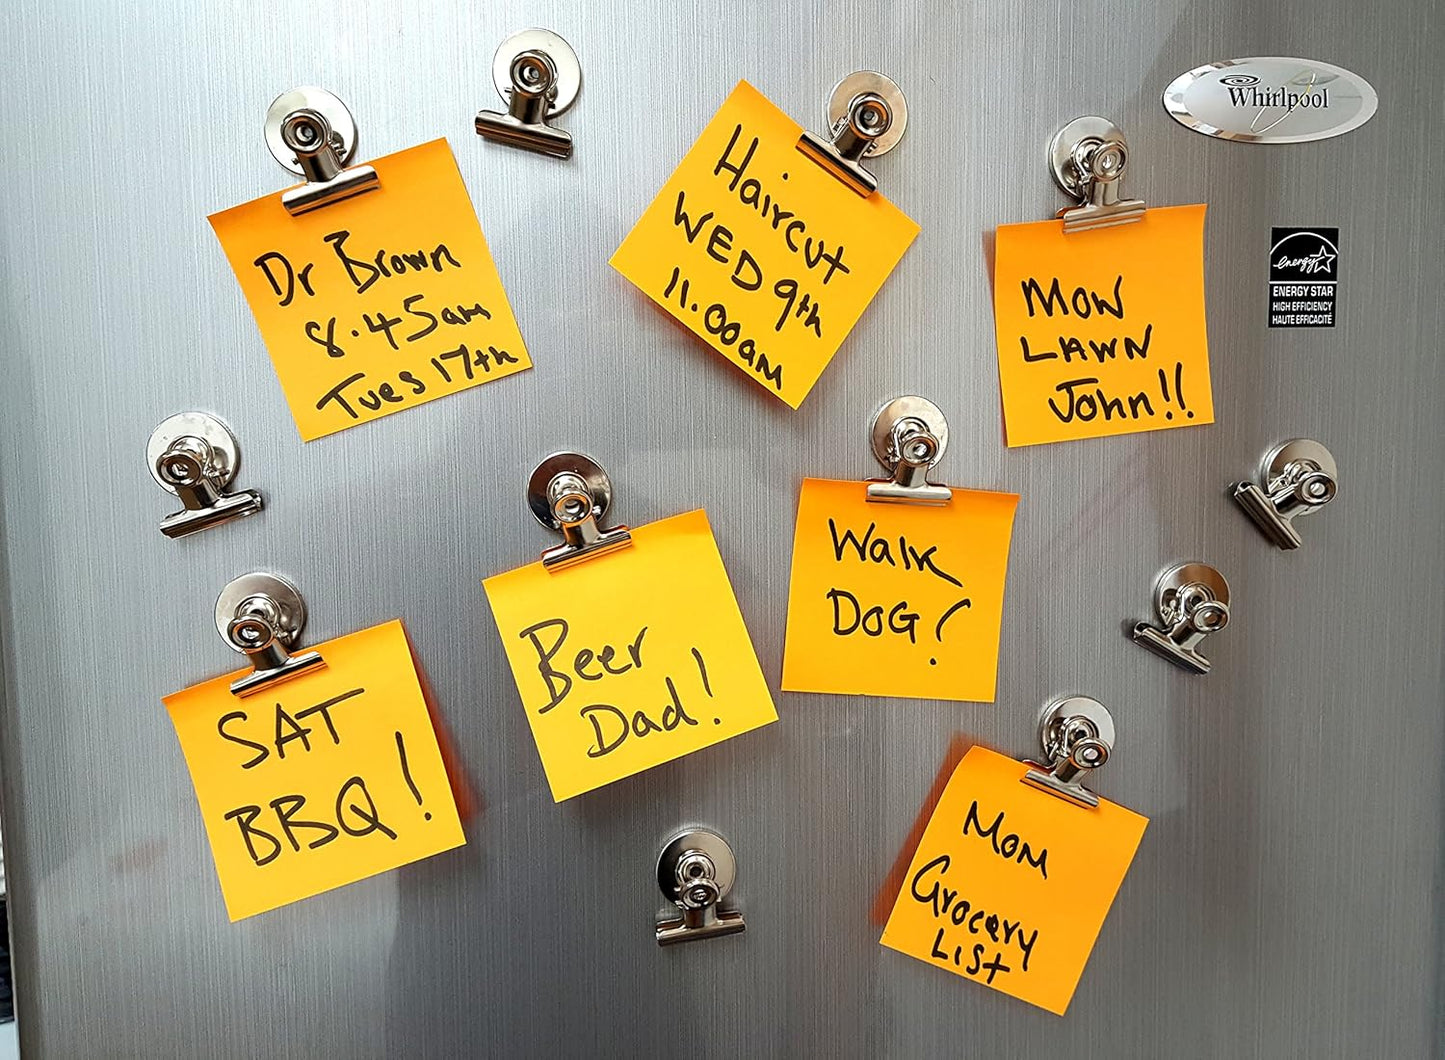 Dr Brown
8.45am
Tues 17th
Haircut
WED 9th
11.00am
MOW
LAWN
John!!
Whirlpool
energy
ENERGY STAR
HIGH EFFICIENCY
HAUTE EFFICACITÉ
SAT
BBQ!
Beer
Dad!
Walk
DOG!
Mom
Grocery
List